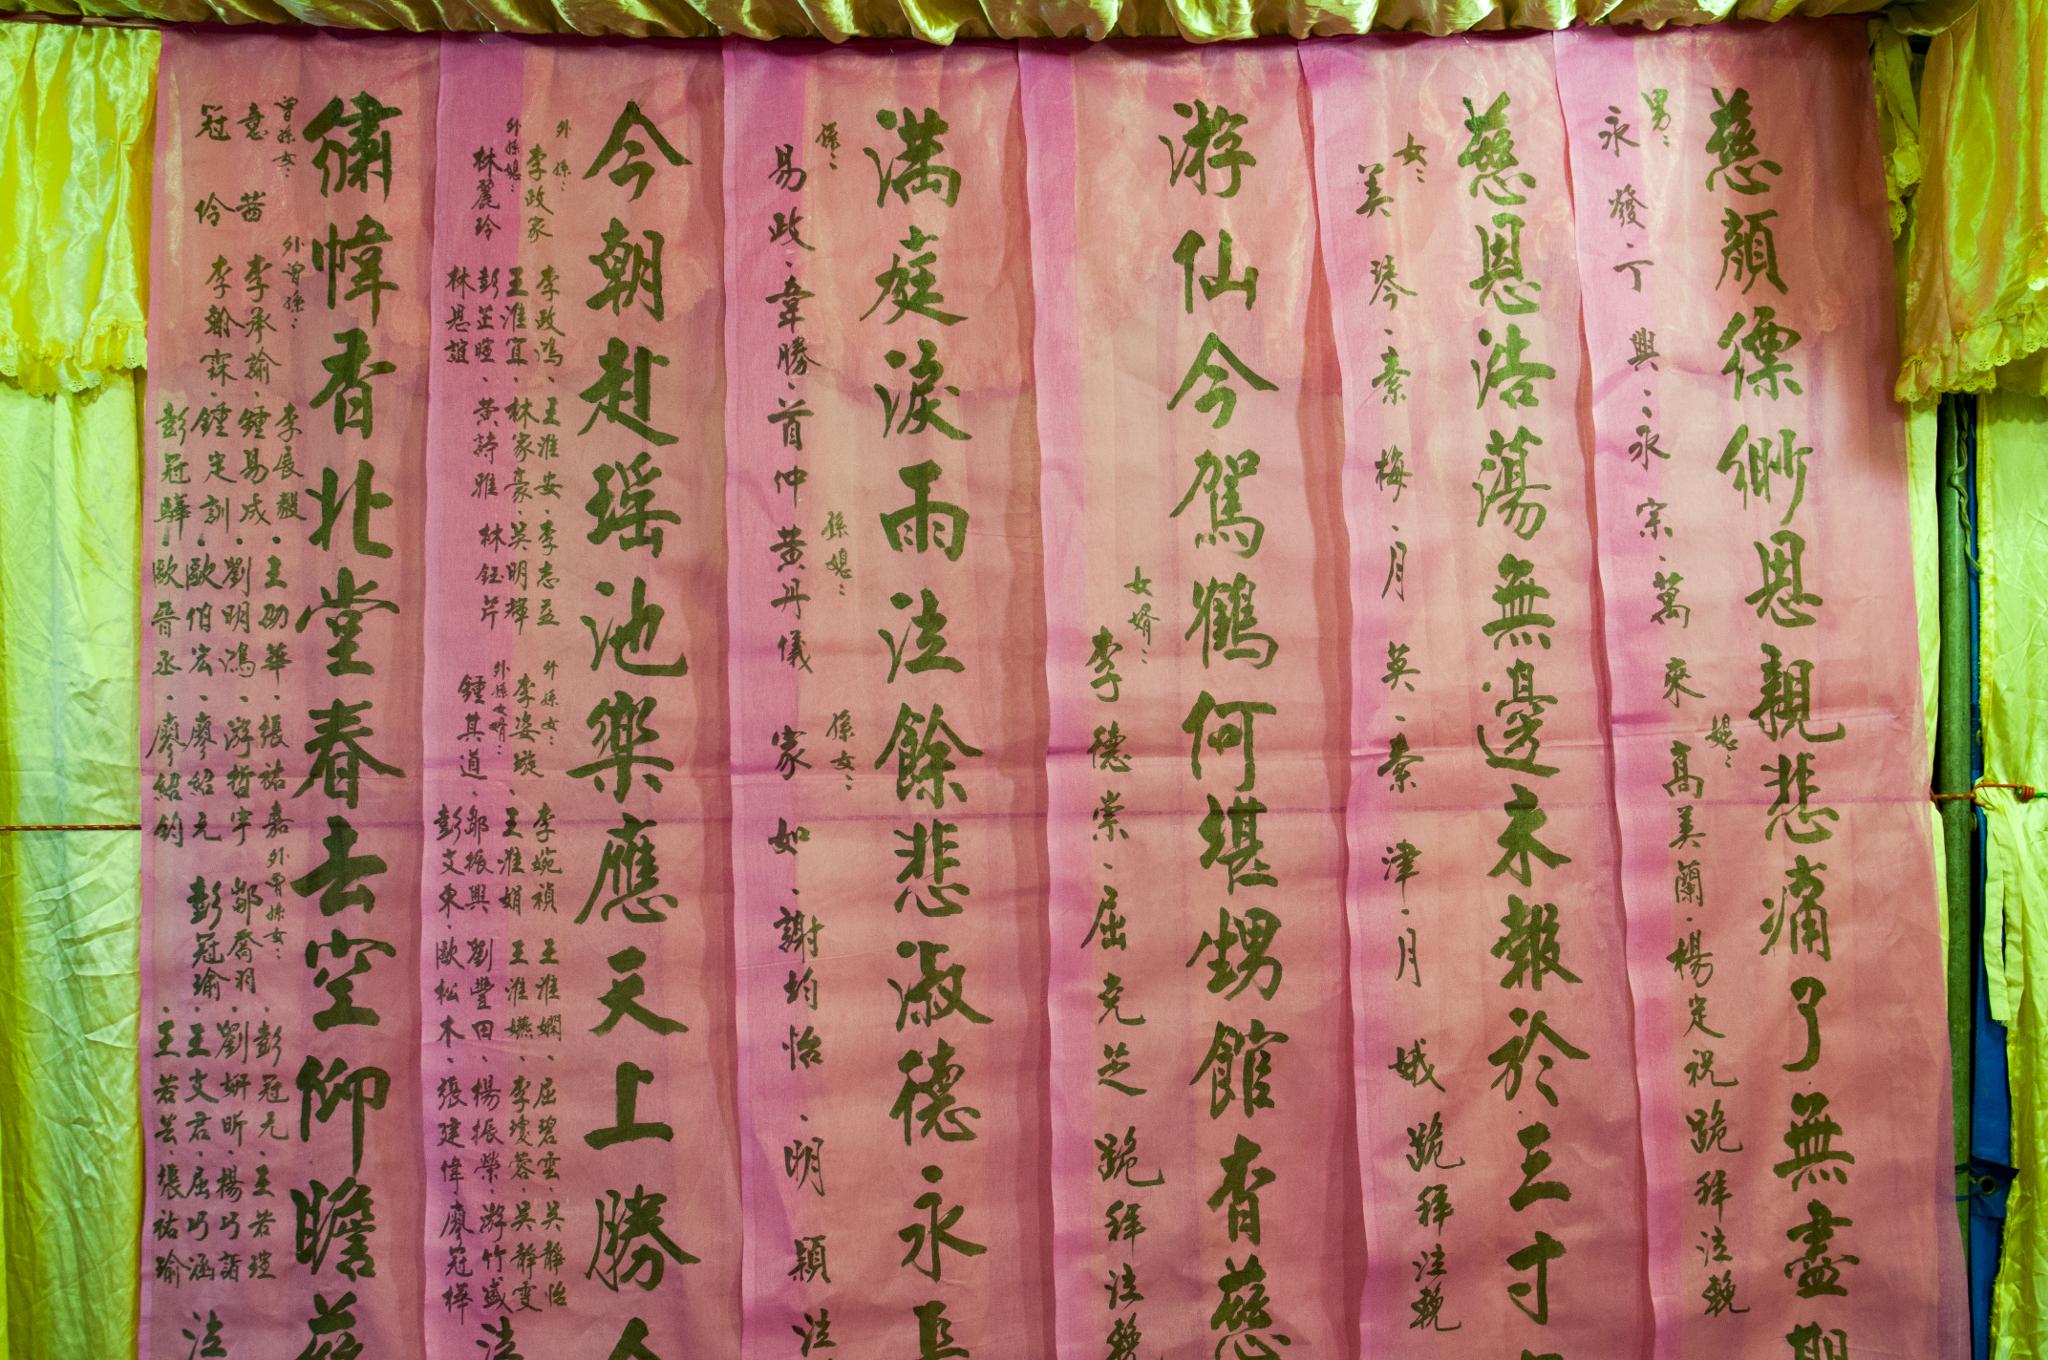 慈顏縹緲思親悲痛了無盡期
男：
永發、丁興、永宗、萬來
媳：
高美蘭、楊定祝
跪拜泣輓
慈恩浩蕩無邊未報於三寸
女：
美琴、素梅、月英、素津、月娥
跪拜泣輓
游仙今駕鶴何堪甥館杳慈
女婿：
李德崇、屈克芝
跪拜泣輓
滿庭淚雨泣餘悲淑德永長
孫：
易政、韋勝、首仲
孫媳：
黃丹儀
孫女：
家如、謝均怡、明穎
泣
今朝赴瑤池樂應天上勝人
外孫：
李政家 李政鴻、王淮安、李志益
王淮宜、林家豪、吳明輝
外孫媳：
林麗玲 彭芷暄、黃詩雅 林鈺芹
林恩誼
外孫女：
李姿璇、李婉禎 王淮嫻、屈碧雲、吳靜怡
王淮娟 王淮嬿、李瓊蓉、吳靜雯
外孫女婿：
鍾其道、鄒振興 劉豐田、楊振榮、游竹盛
彭文東、歐松木、張建偉 廖冠樺
泣
繡幃香北堂春去空仰瞻慈
曾孫女：
意茜
冠伶
外曾孫：
李宸毅、王劭華、張祐嘉
李承諭、鍾易成、劉明鴻、游哲宇
李翰霖、鍾定訓、歐俏宏、廖紹元
彭冠驊、歐晉丞、廖紹鈞
外曾孫女：
鄒喬羽、彭冠允、王若瑄
彭冠瑜、劉妍昕、楊巧諳
王文君、屈巧涵
王若芸、張祐瑜
泣